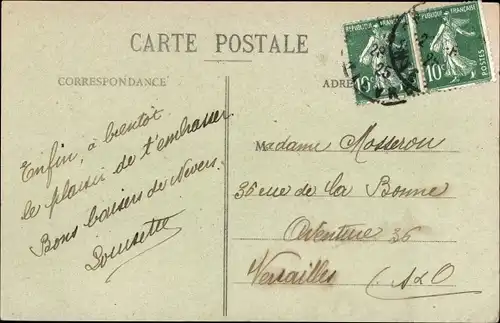 CARTE POSTALE
CORRESPONDANCE
ADRE
REPUBLIQUE FRANÇAISE
10
REPUBLIQUE FRANÇAISE
POSTES
10
25
Enfin, à bientôt
le plaisir de t'embrasser
Bons baisers de Nevers.
Lousette
Madame Mosseron
36 rue de la Bonne
Aventure 36
Versailles (S&O